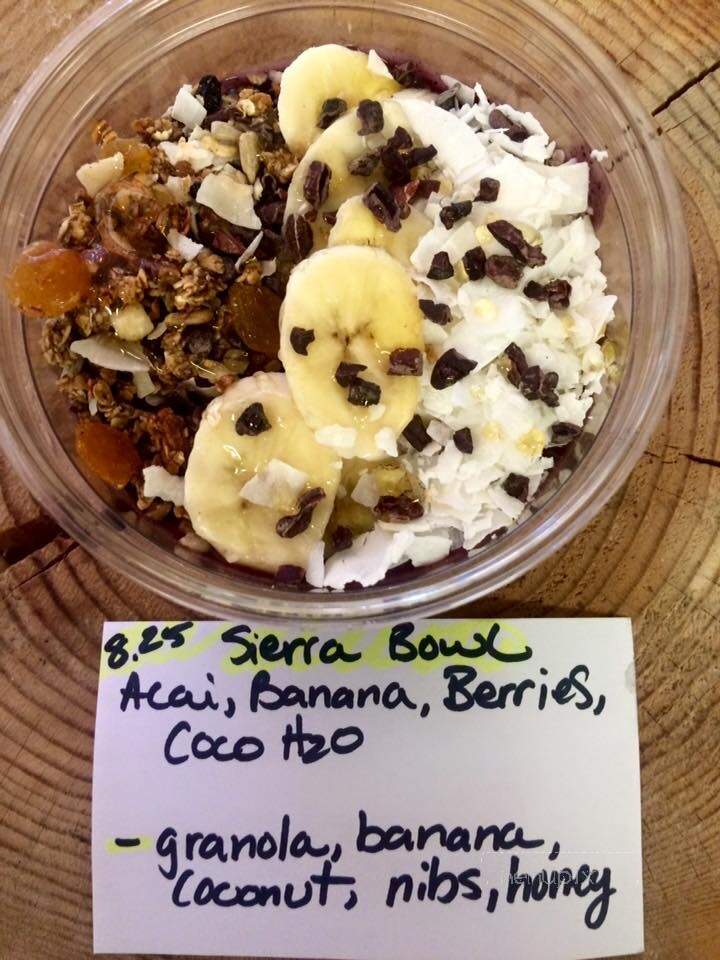 8.25 Sierra Bowl
Acai, Banana, Berries,
Coco H2O
- granola, banana,
coconut, nibs, honey